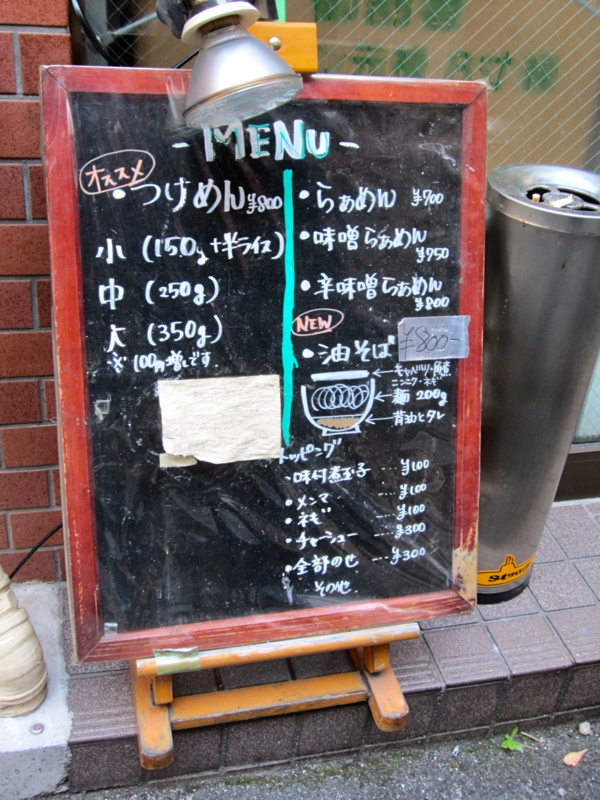 - MENU -
オススメ
・つけめん ¥800
小 (150g+半ライス)
中 (250g)
大 (350g)
※100円増しです
・らぁめん ¥700
・味噌らぁめん
¥750
・辛味噌らぁめん
¥800
NEW
・油そば ¥800-
ニンニク・ネギ
麺 200g
背油とタレ
トッピング
・味付煮玉子 --- ¥100
・メンマ ¥100
・ネギ --- ¥100
・チャーシュー ---- ¥300
・全部のせ --- ¥300
その他